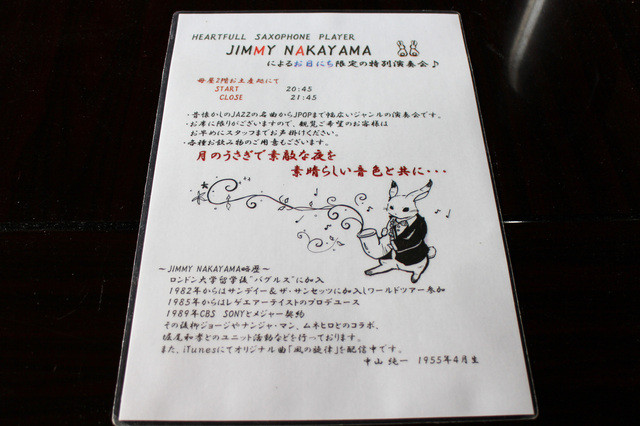 HEARTFULL SAXOPHONE PLAYER
JIMMY NAKAYAMA
によるお日にち限定の特別演奏会♪
母屋2階お土産処にて
START 20:45
CLOSE 21:45
・昔懐かしのJAZZの名曲からJPOPまで幅広いジャンルの演奏会です。
・お席に限りがございますので、観覧ご希望のお客様は
お早めにスタッフまでお声掛けください。
・各種お飲み物のご用意もございます。
月のうさぎで素敵な夜を
素晴らしい音色と共に・・・
～JIMMY NAKAYAMA略歴～
ロンドン大学留学後"バグルス"に加入
1982年からはサンディー&ザ・サンセッツに加入しワールドツアー参加
1985年からはレゲエアーテイストのプロデュース
1989年CBS SONYとメジャー契約
その後柳ジョージやナンジャ・マン、ムネヒロとのコラボ、
堀尾和孝とのユニット活動などを行っております。
また、iTunesにてオリジナル曲「風の旋律」を配信中です。
中山 純一 1955年4月生